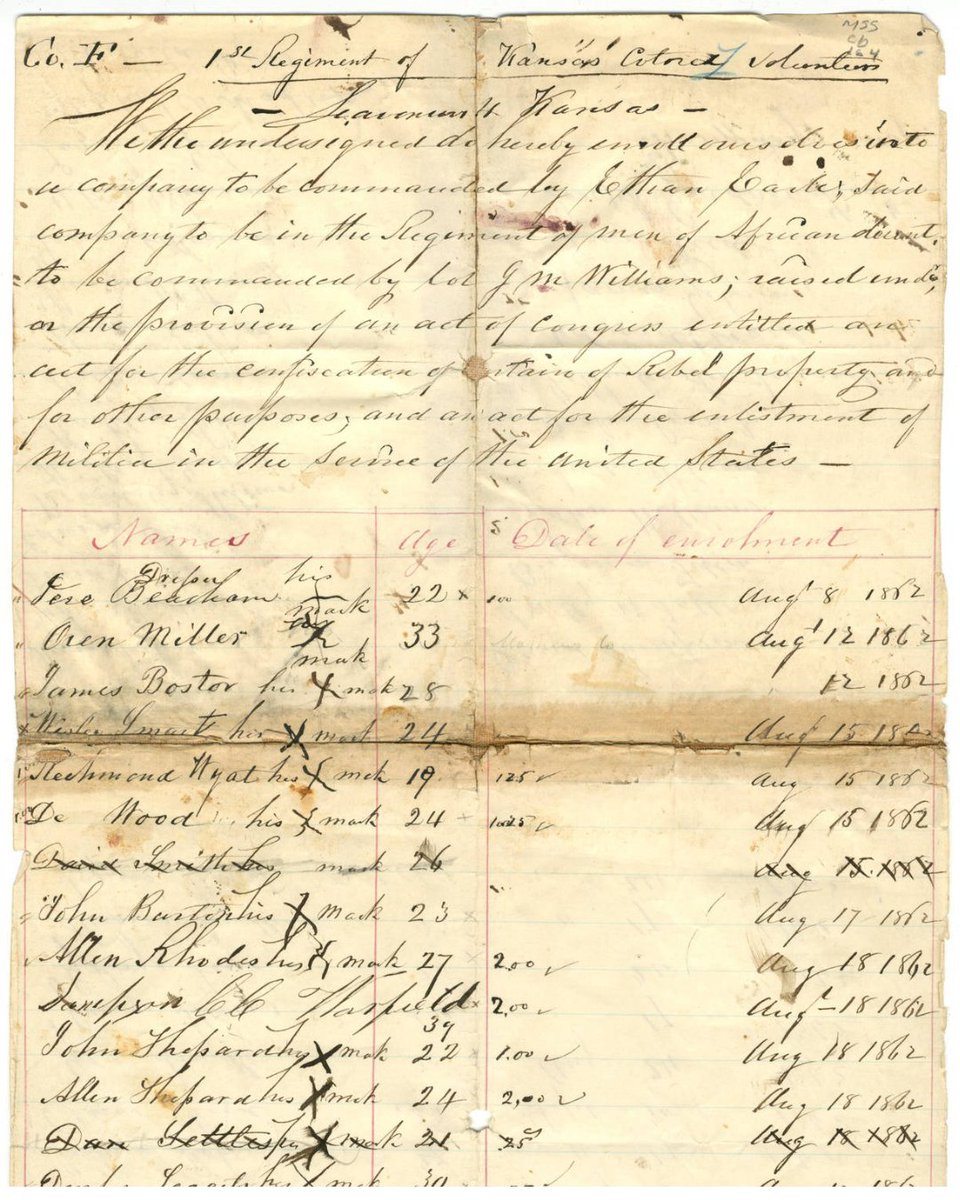 MSS
cb
164
Co. F — 1st Regiment of Kansas Colored Volunteers
— Leavenworth Kansas —
We the undersigned do hereby enroll ourselves into
a company to be commanded by Ethan Earle, Said
company to be in the Regiment of men of African decent,
to be commanded by Col J M Williams; raised unde,
or the provision of an act of Congress entitled an
act for the confiscation of of Rebel property and
for other purposes; and an act for the enlistment of
Militia in the Service of the United States —
Names Age Date of enrolment
Dresser his
Jese Beacham mark 22 100 Aug 8 1862
Oren Miller his 33 Augt 12 1862
mark
James Bostor his X mark 28 12 1862
Smart his X mark 24 Aug 15 1862
Richmond Wyat his X mark 19 125 Aug 15 1862
De Wood his X mark 24 Aug 15 1862
Smith his mark 26 Aug 15 1862
John Burton his X mark 23 Aug 17 1862
Allen Rhodes his X mark 27 2.00 Aug 18 1862
Sampson CC Warfield 2.00 Augt 18 1862
39
John Shepard his X mark 22 1.00 Aug 18 1862
Allen Shepard his X mark 24 2.00 Aug 18 1862
Dan Settles his X mark 21 25 Aug 18 1862